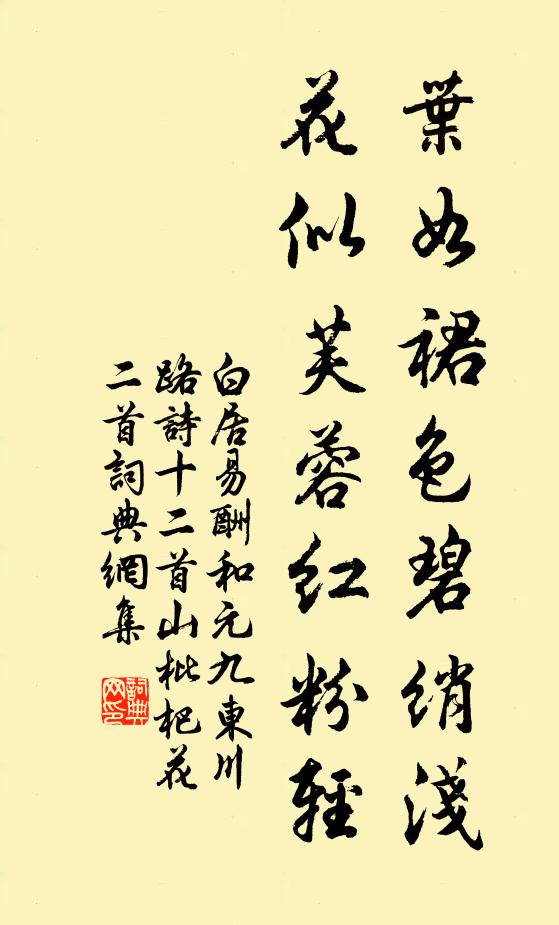 葉如裙色碧綃淺
花似芙蓉紅粉輕
白居易酬和元九東川
路詩十二首山枇杷花
二首詞典網集
詞典
网印